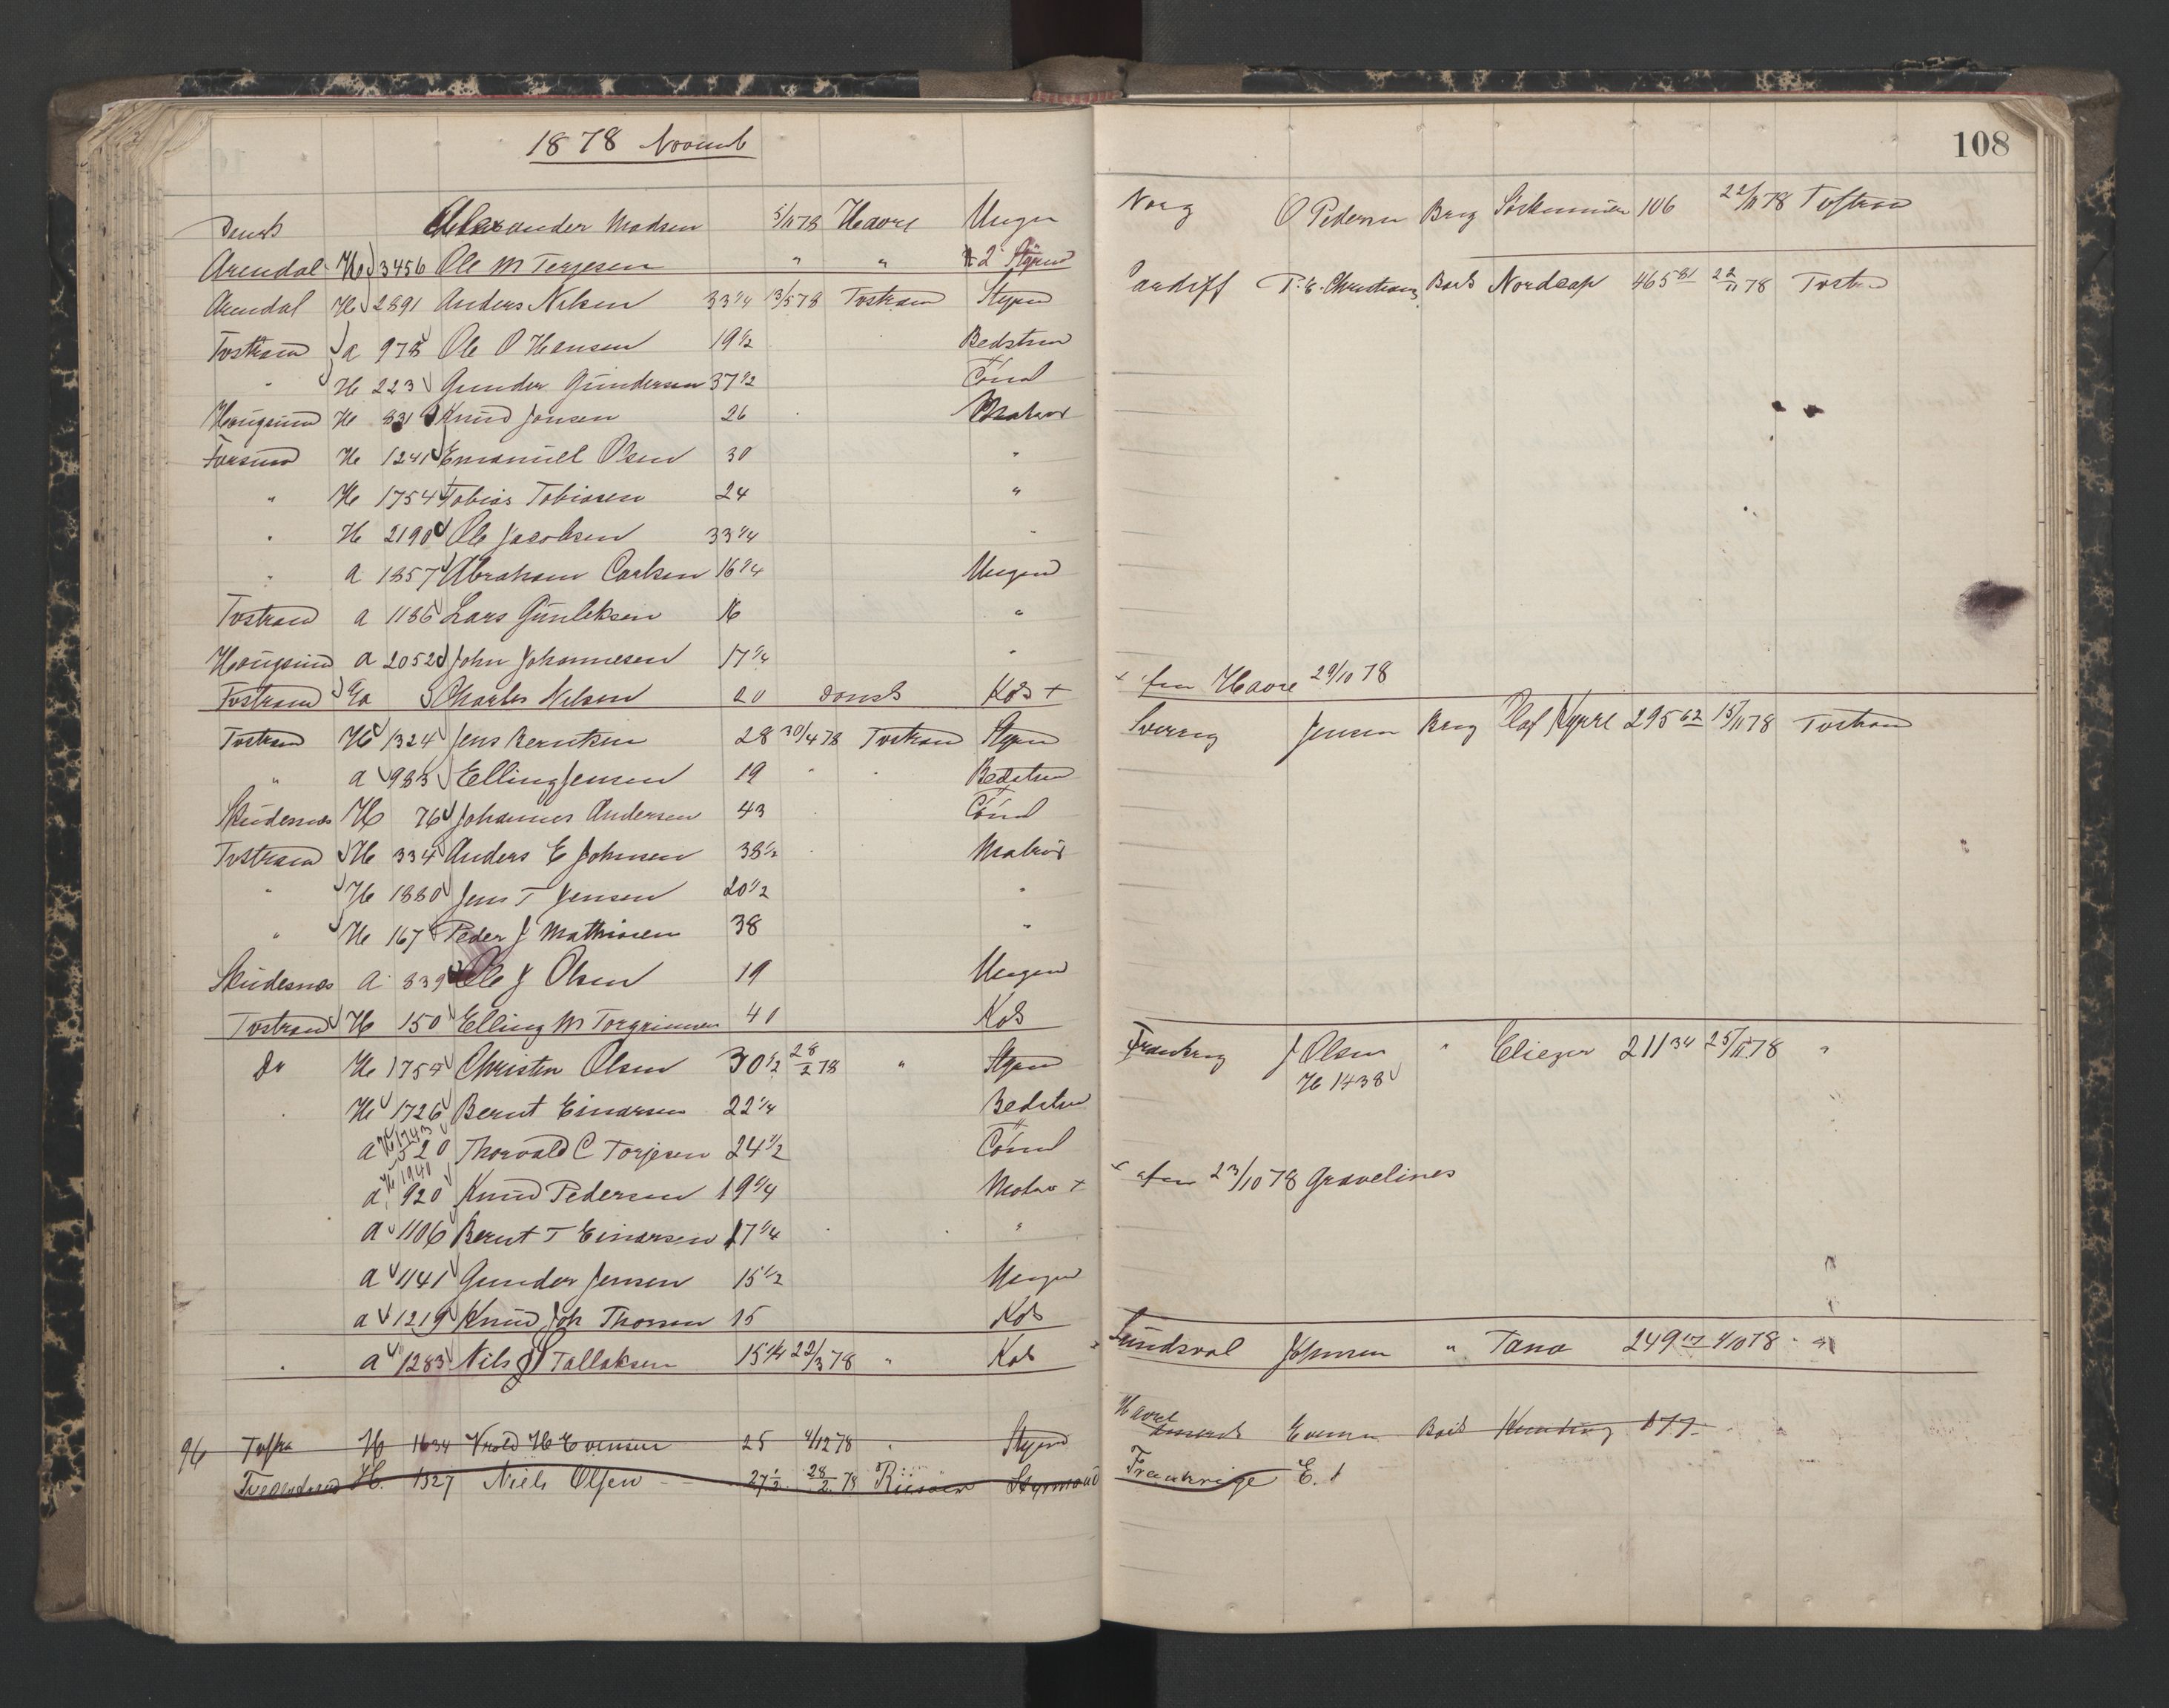 1878 Novemb
108
Dansk Alexander Madsen 5/11 78 Havre Ungm Norg O Pedersen Brig 106 22/11 78 Tvstrand
Arendal H 3456 Ole M Terjesen " " 2 Styrm
Arendal H 2891 Anders Nilsen 33 1/4 13/5 78 Tvstrand Styrm Cardiff P. E. Christians Bark Nordcap 465 81 22/11 78 Tvstrand
Tvstrand a 978 Ole O Hansen 19 1/2 Bedstm
" H 223 Gunder Gundersen 37 1/2 Tömd
Haugsund H 831 Knud Jonsen 26 Matros
Farsund H 1241 Emanuel Olsen 30 "
" H 1754 Tobias Tobiasen 24 "
" H 2190 Ole Jacobsen 33 1/4 "
" a 1357 Abraham Carlsen 16 1/4 Ungm
Tvstrand a 1186 Lars Gunleksen 16 "
Haugsund a 2052 John Johannesen 17 1/4 "
Tvstrand Charles Nilsen 20 dansk Kok + + afm Havre 29/10 78
Tvstrand H 1324 Jens Berntsen 28 30/4 78 Tvstrand Styrm Sverrig Jensen Brig Olaf Kyrre 295 62 15/11 78 Tvstrand
" a 983 Elling Jensen 19 " " Bedstm
Skudesnes H 76 Johannes Andersen 43 Tömd
Tvstrand H 334 Anders E Johnsen 38 1/2 Matros
" H 1880 Jens T Jensen 20 1/2 "
" H 167 Peder J Mathisen 38 "
Skudesnes a 839 Ole J Olsen 19 Ungm
Tvstrand H 150 Elling M Torgrimsen 40 Kok
Do H 1754 Christen Olsen 30 1/2 28/2 78 " Styrm Frankrig J Olsen " Eliezer 211 34 25/11 78 "
H 1438
H 1726 Bernt Einarsen 22 1/4 Bedstm
H 1743
a 520 Thorvald C Torjesen 24 1/2 Tömd
H 1940
a 920 Knud Pedersen 19 1/4 Matro + + afm 23/10 78 Gravelines
a 1106 Bernt T Einarsen 17 1/4 "
a 1141 Gunder Jensen 15 1/2 Ungm
a 1219 Knud Joh Thorsen 15 Kok
a 1283 Nils J Tallaksen 15 1/4 22/3 78 " Kok Sundsval Johnsen " Tana 249 4/10 78 "
96 Tvstra H 1634 H Evensen 25 4/12 78 " Styrm Havre Evensen Bark 177
Tvedestrand H. 1327 Niels Olsen 27 1/2 28/2 78 Riisøer Styrmand Frankrige E. 1